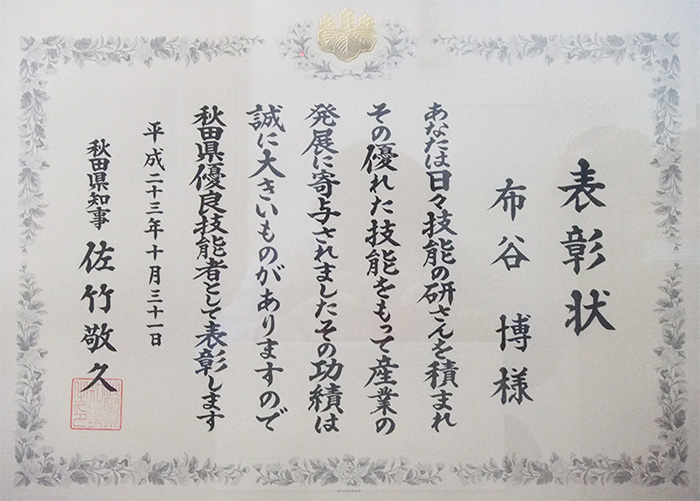 表彰状
布谷 博様
あなたは日々技能の研さんを積まれ
その優れた技能をもって産業の
発展に寄与されましたその功績は
誠に大きいものがありますので
秋田県優良技能者として表彰します
平成二十三年十月三十一日
秋田県知事 佐竹敬久